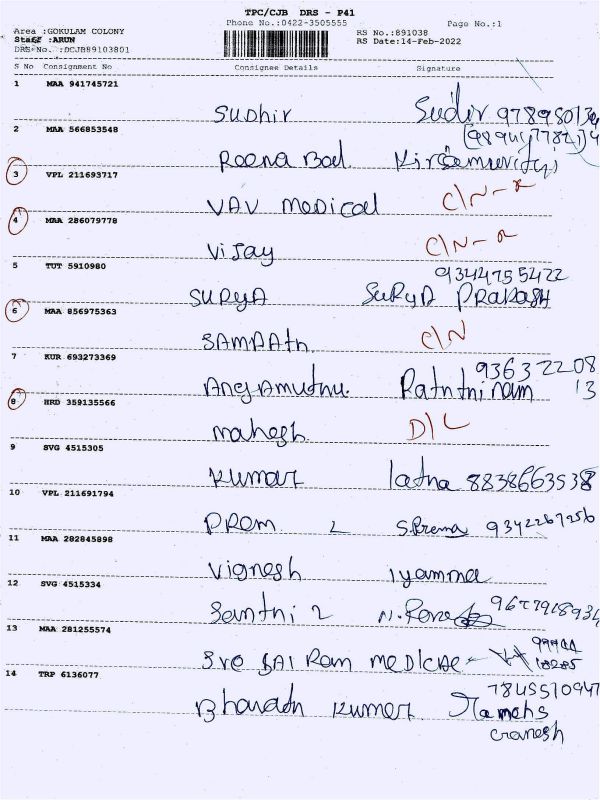 TPC/CJB DRS - P41
Phone No.:0422-3505555
Page No.:1
Area :GOKULAM COLONY
Staff :ARUN
DRS No. :DCJB89103801
RS No.:891038
RS Date:14-Feb-2022
S No Consignment No Consignee Details Signature
1 MAA 941745721
Sudhir Sudir
2 MAA 566853548
3 VPL 211693717
VAV medical C/N
4 MAA 286079778
Vijay C/N
5 TUT 5910980
9344755422
SURYA SURYA PRAKASH
6 MAA 856975363
SAMPAth C/N
7 KUR 693273369
93632208
13
8 HRD 359135566
mahesh D/L
9 SVG 4515305
Kumar latha 8838663538
10 VPL 211691794
PREM S.Prema 9342267256
11 MAA 282845898
Vignesh Iyamma
12 SVG 4515334
Santhi 2
13 MAA 281255574
Sre SAI Ram
14 TRP 6136077
Bharath Kumar